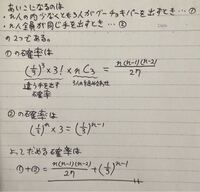 あいこになるのは
・n人の内少なくとも3人がグーチョキパーを出すとき…①
・n人全員が同じ手を出すとき…②
の2つである。
①の確率は
(1/3)³ × 3! × nC3 = n(n-1)(n-2)/27
違う手を出す
確率
3人の組み合わせ
②の確率は
(1/3)ⁿ × 3 = (1/3)ⁿ⁻¹
よって求める確率は
①+② = n(n-1)(n-2)/27 + (1/3)ⁿ⁻¹